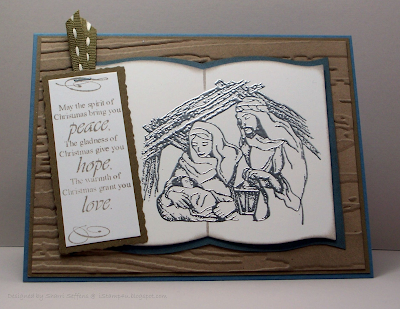 May the spirit of
Christmas bring you
peace.
The gladness of
Christmas give you
hope.
The warmth of
Christmas grant you
love.
Designed by